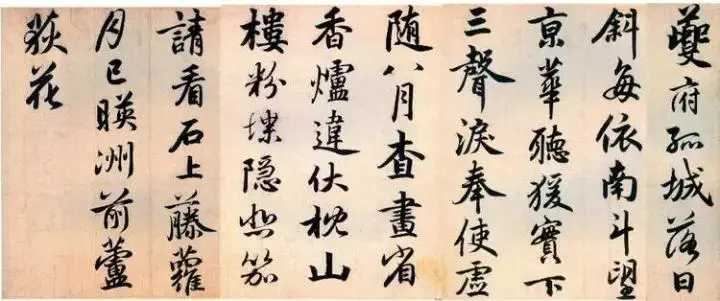 夔府孤城落日
斜每依南斗望
京華聽猨實下
三聲淚奉使虛
随八月查畫省
香爐違伏枕山
樓粉堞隐悲笳
請看石上藤蘿
月已暎洲前蘆
荻花